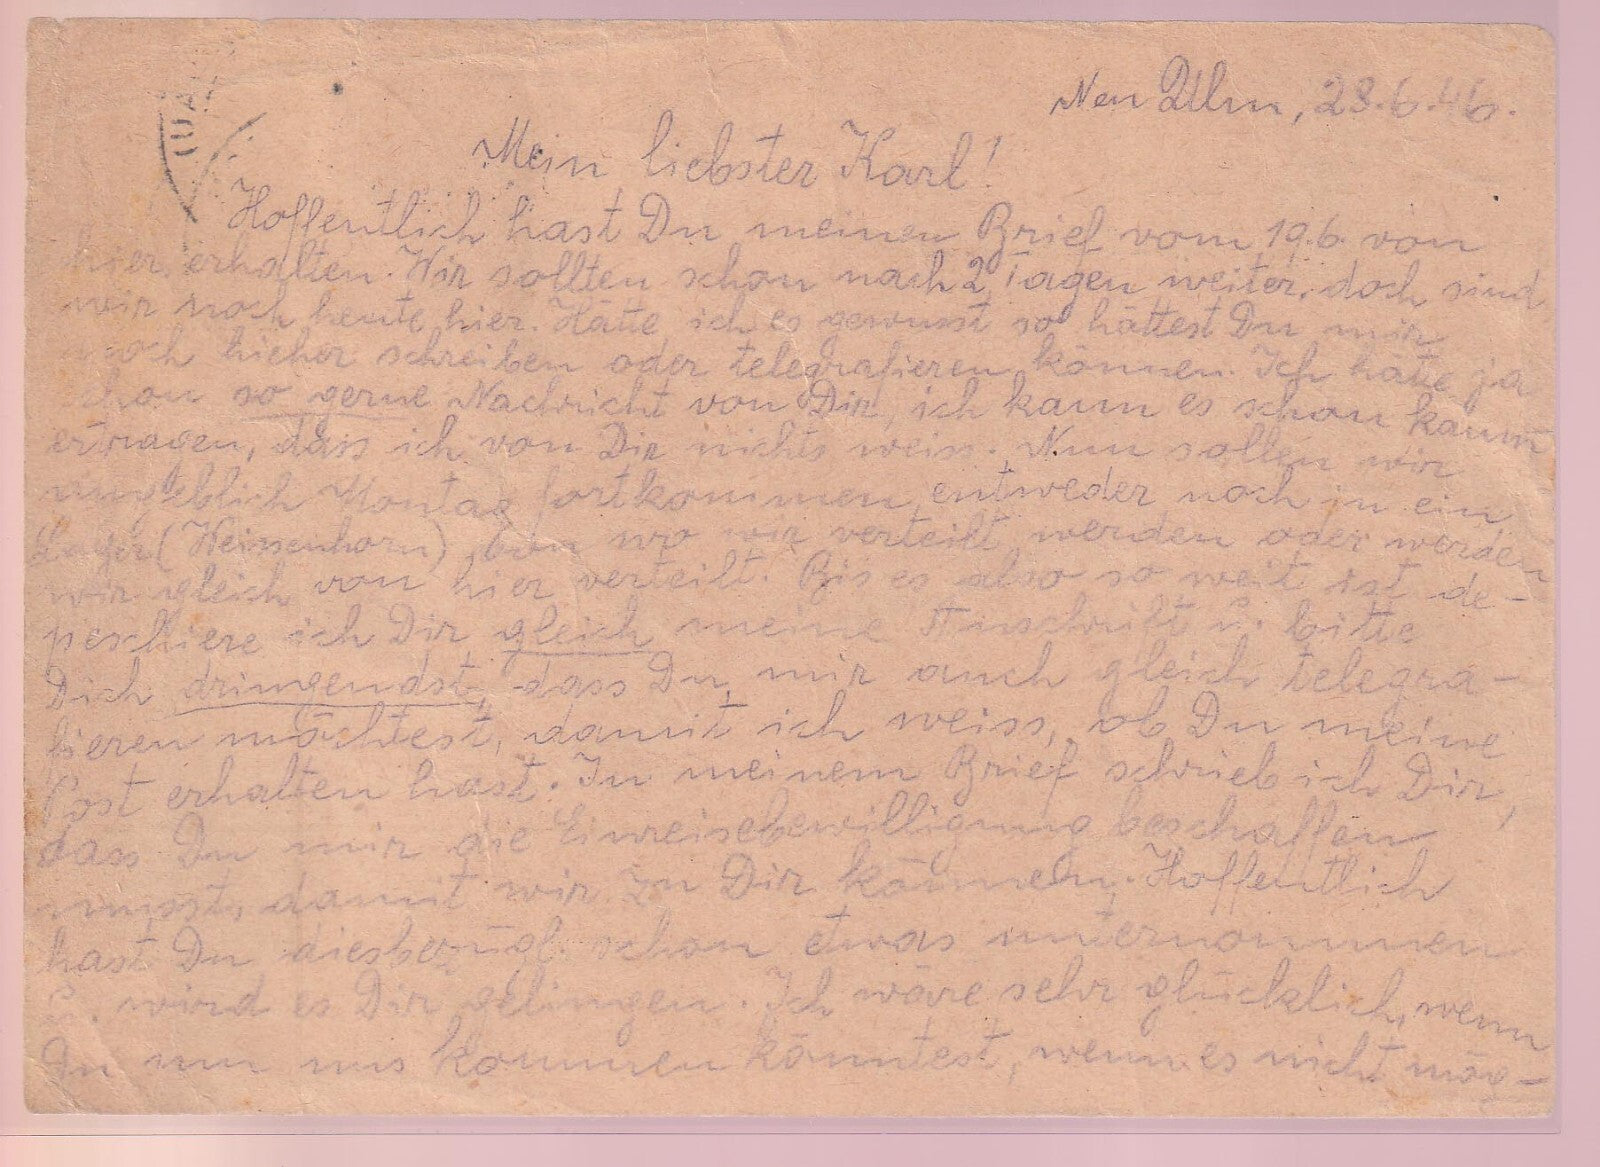 Neu Ulm, 28.6.46.
Mein liebster Karl!
Hoffentlich hast Du meinen Brief vom 19.6. von
hier erhalten. Wir sollten schon nach 2 Tagen weiter, doch sind
wir noch heute hier. Hätte ich es gewusst so hättest Du mir
noch hieher schreiben oder telegrafieren können. Ich hätte ja
schon so gerne Nachricht von Dir, ich kann es schon kaum
ertragen, dass ich von Dir nichts weiss. Nun sollen wir
angeblich Montag fortkommen, entweder noch in ein
Lager (Weissenhorn) von wo wir verteilt werden oder werden
wir gleich von hier verteilt. Bis es also so weit ist de-
peschiere ich Dir gleich meine Anschrift u. bitte
Dich dringendst, dass Du mir auch gleich telegra-
fieren möchtest, damit ich weiss, ob Du meine
Post erhalten hast. In meinem Brief schrieb ich Dir,
dass Du mir die Einreisebewilligung beschaffen
musst, damit wir zu Dir können. Hoffentlich
hast Du diesbezügl. schon etwas unternommen
u. wird es Dir gelingen. Ich wäre sehr glücklich, wenn
Du um uns kommen könntest, wenn es nicht mög-